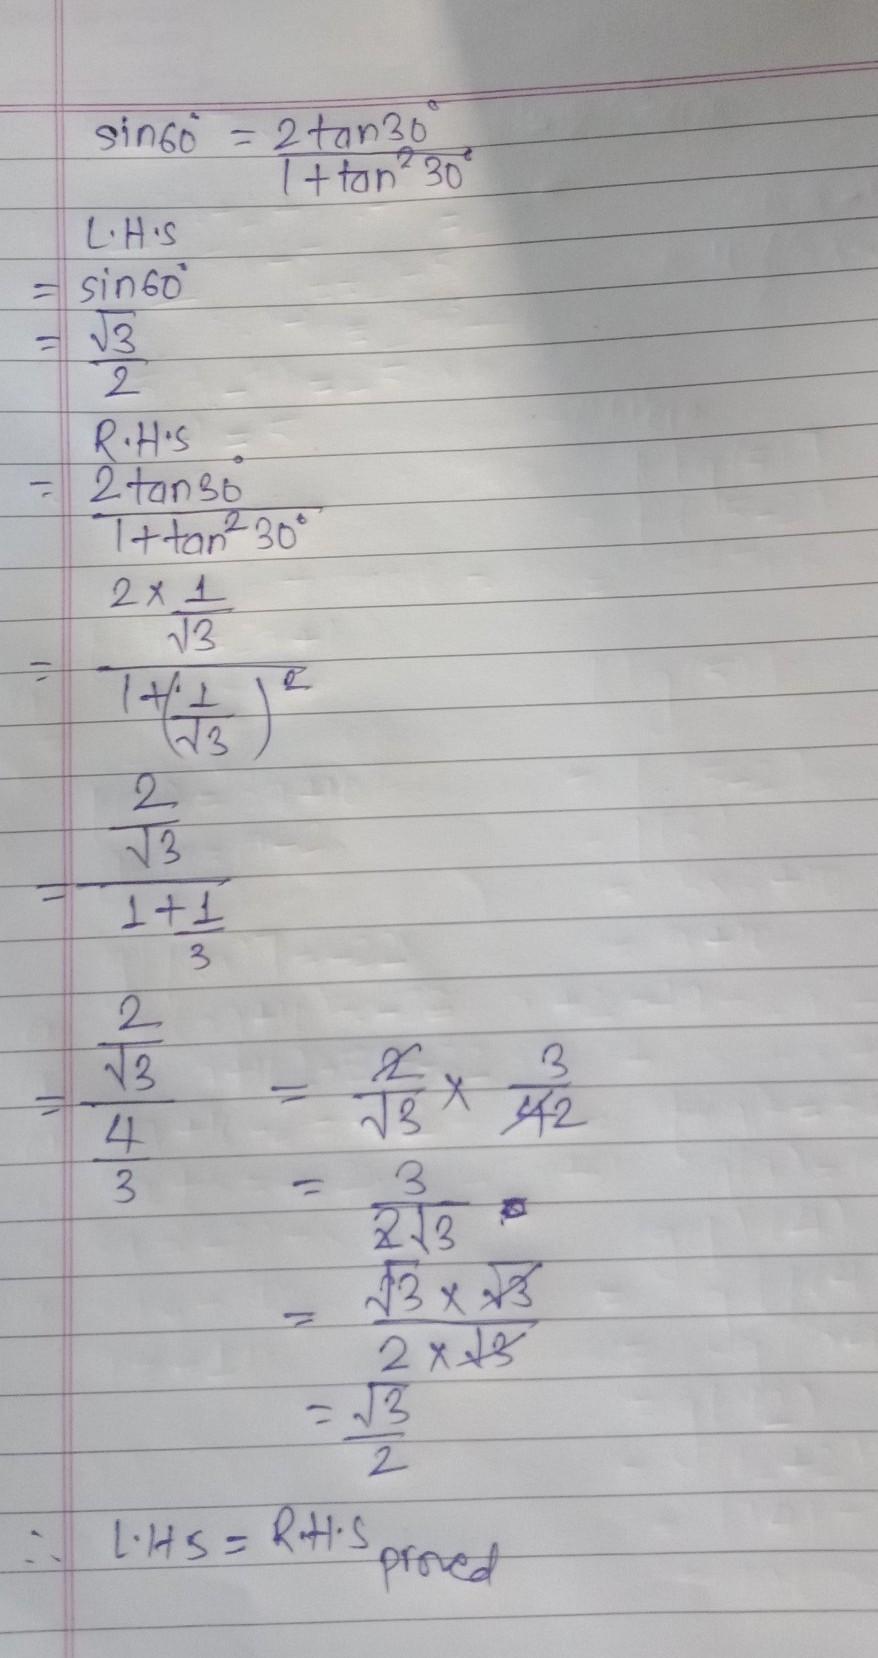 sin60° = 2tan30°
1+tan²30°
L.H.S
= sin60°
= √3
2
R.H.S
= 2tan30°
1+tan²30°
2 × 1
√3
=
1+(1
√3)²
2
√3
=
1+1
3
2
√3
=
4
3
= 2/√3 × 3/42
= 3
2√3
= √3 × √3
2 × √3
= √3
2
∴ L.H.S = R.H.S proved